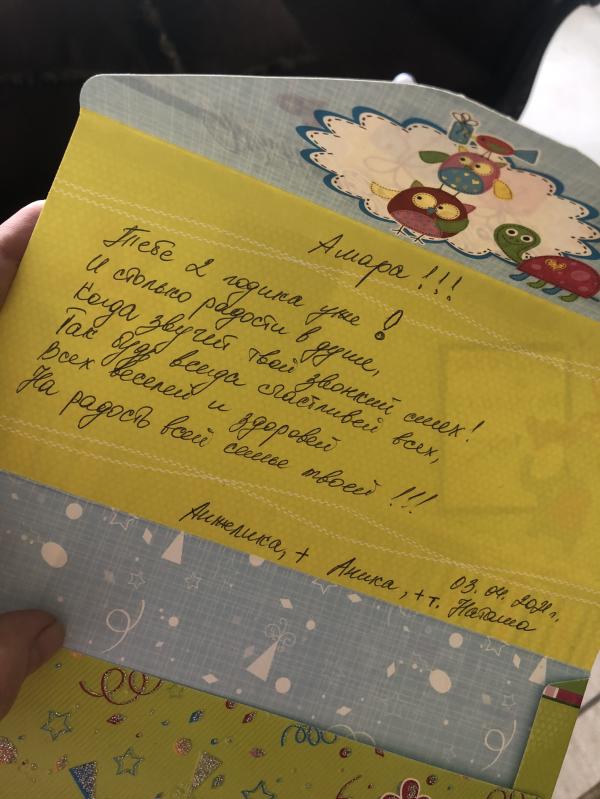 Амара !!!
Тебе 2 годика уже!
И столько радости в душе,
Когда звучит твой звонкий смех!
Так будь всегда счастливей всех,
Всех веселей и здоровей
На радость всей семье твоей !!!
Анжелика, + Аника, + т. Наташа
03. 04. 2021г.